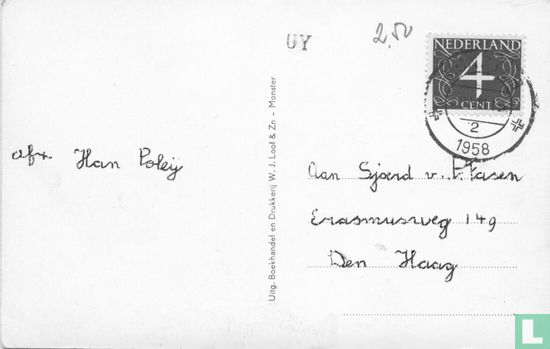 UY
2,50
NEDERLAND
4
CENT
2
1958
afz. Han Poley
Uitg. Boekhandel en Drukkerij W. J. Loof & Zn - Monster
Aan Sjoerd v.
Erasmusweg 149
Den Haag
L